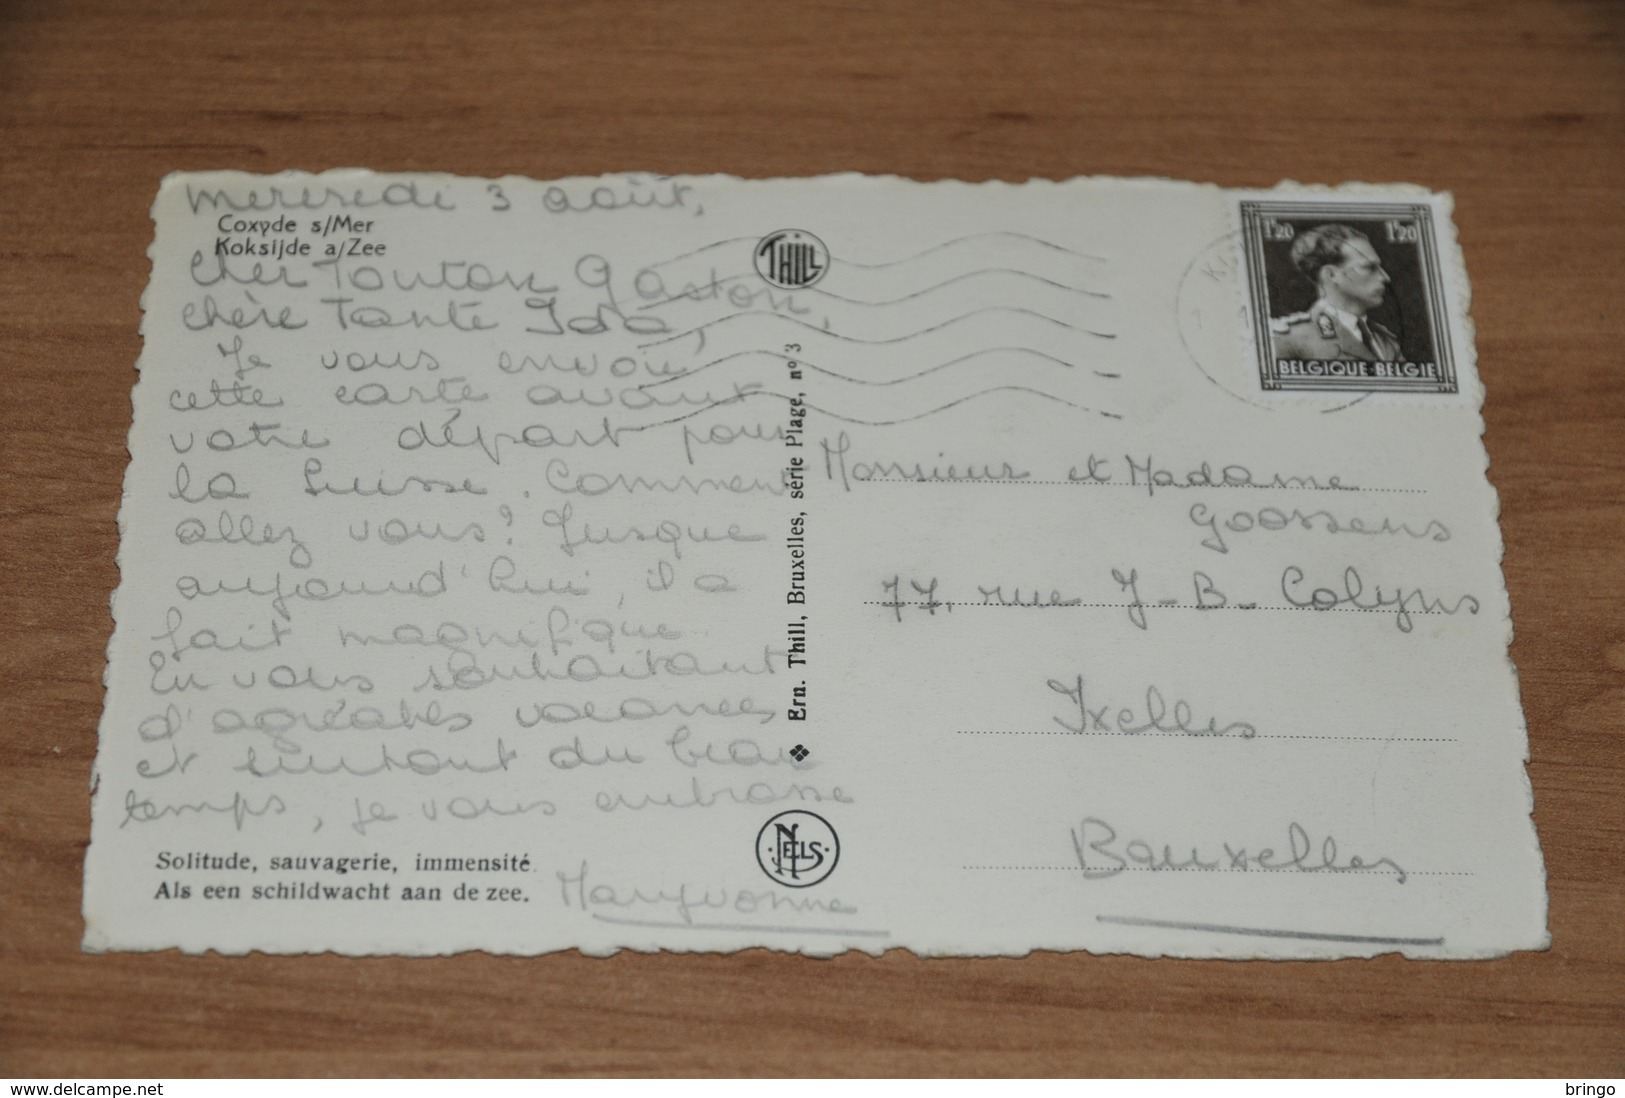 mercredi 3 août,
Coxyde s/Mer
Koksijde a/Zee
Cher Tonton Gaston,
chère Tante Ida,
Je vous envoie
cette carte avant
votre départ pour
la Suisse. Comment
allez vous? Jusque
aujourd'hui, il a
fait magnifique.
En vous souhaitant
d'agréables vacances
et surtout du beau
temps, je vous embrasse
Solitude, sauvagerie, immensité.
Als een schildwacht aan de zee.
Maryvonne
THILL
Ern. Thill, Bruxelles, série Plage, no 3
NELS
1F20 1F20
BELGIQUE·BELGIE
Monsieur et Madame
Goossens
77, rue J-B- Colyns
Ixelles
Bruxelles
www.delcampe.net
bringo